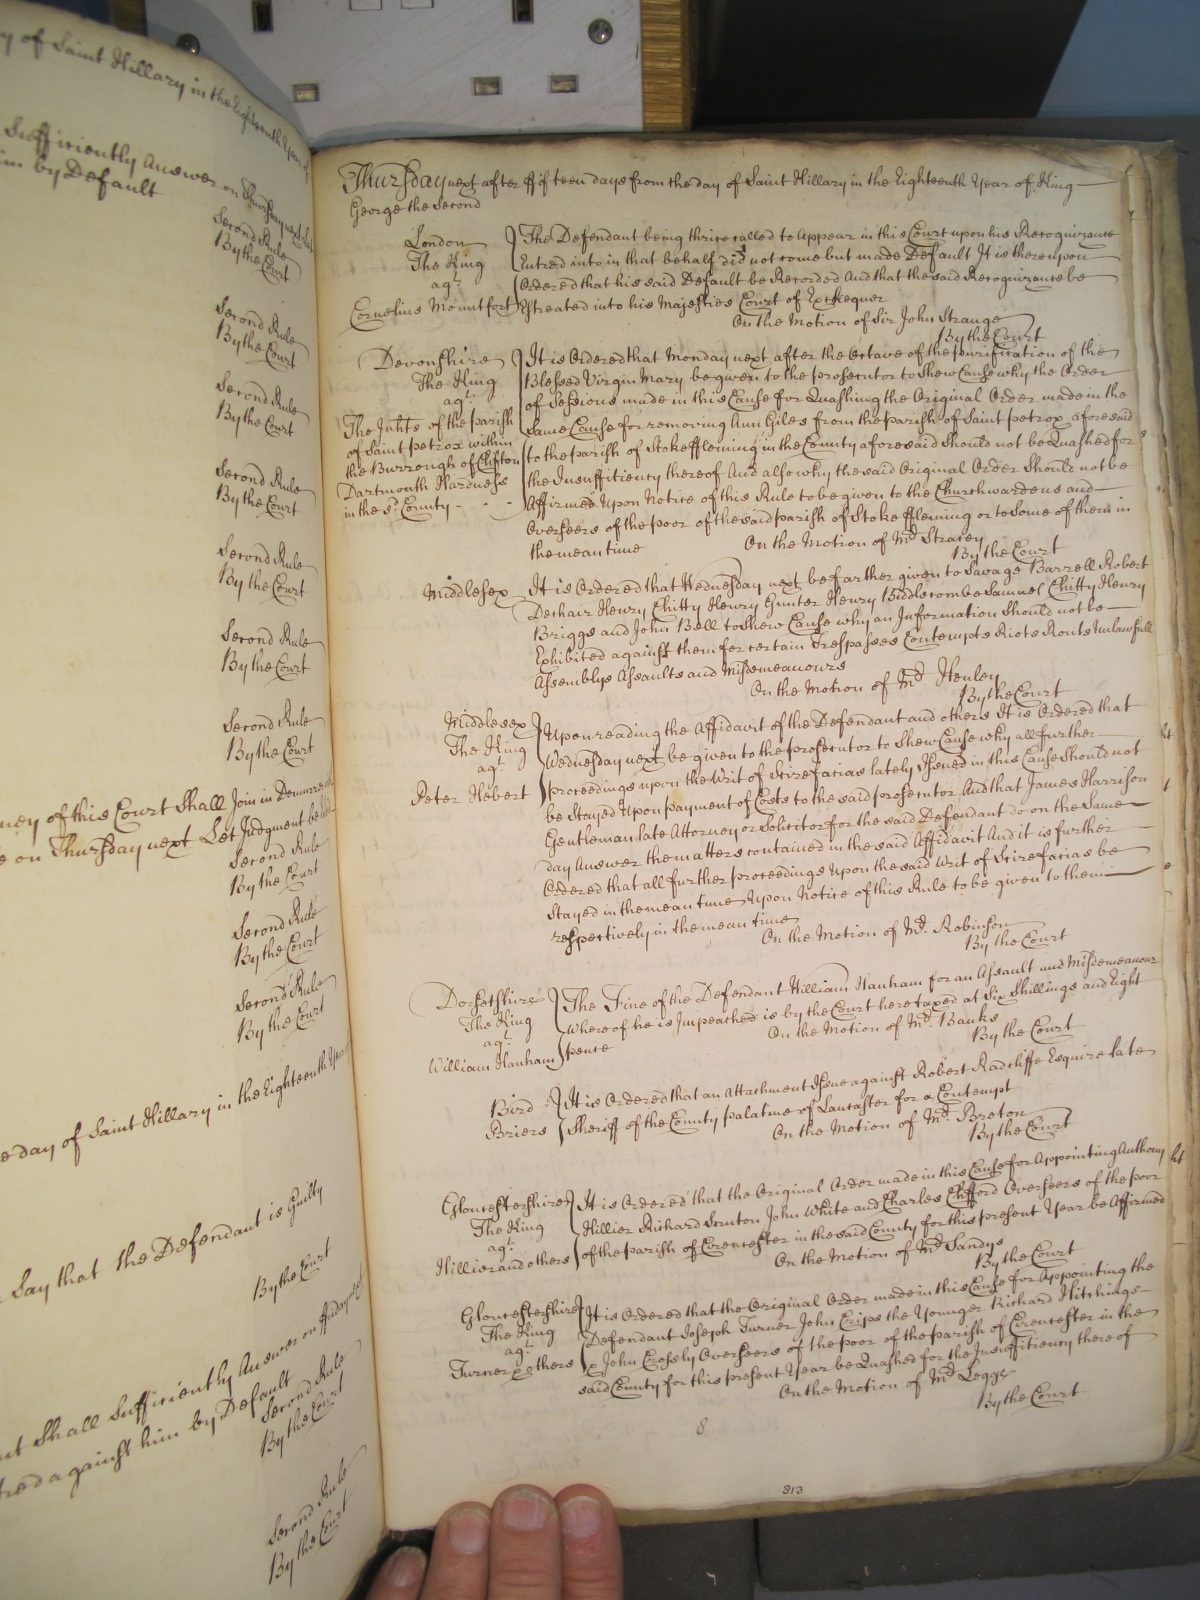 y of Saint Hillary in the Eighteenth Year of
Sufficiently Answer on Thursday next Let
im by Default
Second Rule
By the Court
Second Rule
By the Court
Second Rule
By the Court
Second Rule
By the Court
Second Rule
By the Court
Second Rule
By the Court
Second Rule
By the Court
ney of this Court Shall Join in Demurrer
e on Thursday next Let Judgment be
Second Rule
By the Court
Second Rule
By the Court
Second Rule
By the Court
e day of Saint Hillary in the Eighteenth Year
Say that the Defendant is Guilty
By the Court
nt Shall Sufficiently Answer on ffriday next
red against him by Default
Second Rule
By the Court
Second Rule
By the Court
Thursday next after ffifteen days from the day of Saint Hillary in the Eighteenth Year of King
George the Second
London
The King
agt.
Cornelius Mountfort
The Defendant being thrice called to Appear in this Court upon his Recognizance
Entred into in that behalf did not come but made Default It is thereupon
Ordered that his said Default be Recorded And that the said Recognizance be
Estreated into his Majesties Court of Exchequer
On the Motion of Sir John Strange
By the Court
Devonshire
The King
agt.
The Inhts of the parish
of Saint petrox within
the Burrough of Clifton
Dartmouth Hardness
in the sd. County
It is Ordered that Monday next after the Octave of the purification of the
Blessed Virgin Mary be given to the prosecutor to Shew Cause why the Order
of Sessions made in this Cause for Quashing the Original Order made in the
Same Cause for removing Ann Giles from the parish of Saint petrox aforesaid
to the parish of Stokeffleming in the County aforesaid Should not be Quashed for
the Insufficiency thereof And also why the said Original Order Should not be
Affirmed Upon Notice of this Rule to be given to the Churchwardens and
Overseers of the poor of the said parish of Stoke ffleming or to Some of them in
the mean time
On the Motion of Mr. Stracey
By the Court
Middlesex
It is Ordered that Wednesday next be farther given to Savage Barrell Robert
Dechair Henry Chitty Henry Gunter Henry Biddlecombe Samuel Chitty Henry
Briggs and John Bell to Shew Cause why an Information Should not be
Exhibited against them for certain Trespasses Contempts Riots Routs Unlawfull
Assemblys Assaults and Misdemeanours
On the Motion of Mr. Henley
By the Court
Middlesex
The King
agt.
Peter Hebert
Upon reading the Affidavit of the Defendant and others It is Ordered that
Wednesday next be given to the prosecutor to Shew Cause why all further
proceedings upon the Writ of Scire facias lately Issued in this Cause Should not
be Stayed Upon payment of Costs to the said prosecutor And that James Harrison
Gentleman late Attorney or Solicitor for the said Defendant do on the Same
day Answer the matters contained in the said Affidavit And it is further
Ordered that all further proceedings Upon the said Writ of Scire facias be
Stayed in the mean time Upon Notice of this Rule to be given to them
respectively in the mean time
On the Motion of Mr. Robinson
By the Court
Dorsetshire
The King
agt.
William Hanham
The Fine of the Defendant William Hanham for an Assault and Misdemeanour
whereof he is Impeached is by the Court here taxed at Six Shillings and Eight
pence
On the Motion of Mr. Banks
By the Court
Bird
Briers
It is Ordered that an Attachment Issue against Robert Radcliffe Esquire late
Sheriff of the County palatine of Lancaster for a Contempt
On the Motion of Mr. Breton
By the Court
Gloucestershire
The King
agt.
Hillier and others
It is Ordered that the Original Order made in this Cause for Appointing Anthony
Hillier Richard Scruton John White and Charles Clifford Overseers of the poor
of the parish of Cirencester in the said County for this present Year be Affirmed
On the Motion of Mr. Sandys
By the Court
Gloucestershire
The King
agt.
Turner & others
It is Ordered that the Original Order made in this Cause for Appointing the
Defendant Joseph Turner John Crips the Younger Richard Hitchings
& John Crossly Overseers of the poor of the parish of Cirencester in the
said County for this present Year be Quashed for the Insufficiency thereof
On the Motion of Mr. Legge
By the Court
8
813